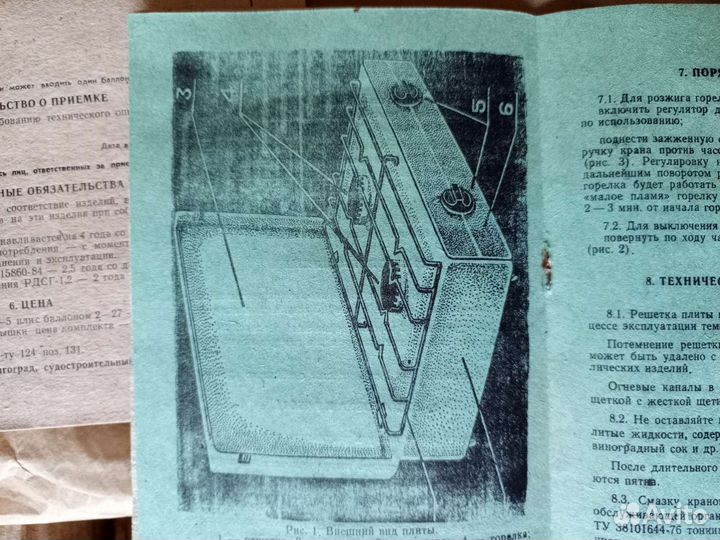 и может входить один баллон
ЬСТВО О ПРИЕМКЕ
ебованию технического оп
Дата в
сь лиц, ответственных за прие
НЫЕ ОБЯЗАТЕЛЬСТВА
соответствие изделий, в
а на эти изделия при соб
навливается на 4 года со
потребления — с момент
анения и эксплуатации.
15860-84 — 2,5 года со д
ения РДСГ-1,2 — 2 года
6. ЦЕНА
—5 плис баллоном 2—27 —
ышки цена комплекта —
-ту 124 поз. 131.
нгоград, судостроительный
3
4
5
6
Рис. 1. Внешний вид плиты.
горелка;
7. ПОРЯ
7.1. Для розжига горел
включить регулятор д
по использованию;
поднести зажженную с
ручку крана против часо
(рис. 3). Регулировку и
дальнейшим поворотом р
горелка будет работать
«малое пламя» горелку
2 — 3 мин. от начала гор
7.2. Для выключения
повернуть по ходу ча
(рис. 2).
8. ТЕХНИЧЕС
8.1. Решетка плиты
цессе эксплуатации тем
Потемнение решетки
может быть удалено с
лических изделий.
Огневые каналы в
щеткой с жесткой щети
8.2. Не оставляйте
литые жидкости, содер
виноградный сок и др.
После длительного
ются пятна.
8.3. Смазку крано
обслуживающей орган
ТУ 38101644-76 тонким
Avito